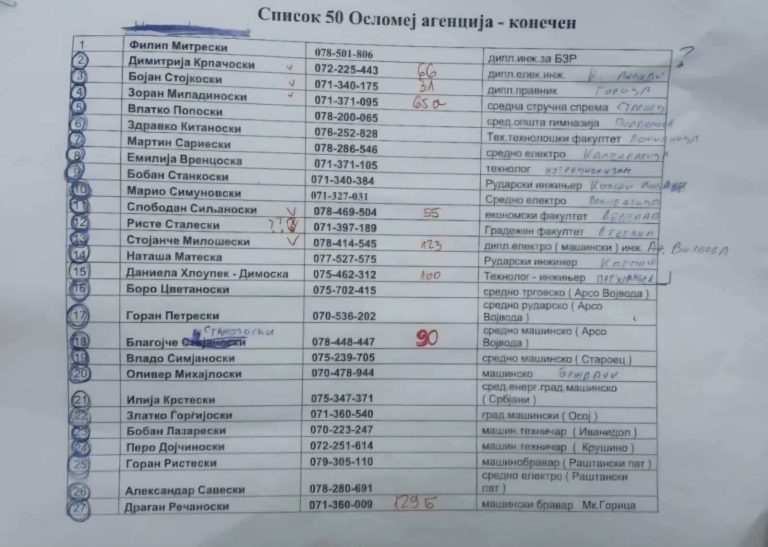 Список 50 Осломеј агенција - конечен
1 Филип Митрески 078-501-806 дипл.инж.за БЗР ?
2 Димитрија Крпачоски 072-225-443 66 дипл.елек.инж.
3 Бојан Стојкоски 071-340-175 31 дипл.правник
4 Зоран Миладиноски 071-371-095 65а средна стручна спрема
5 Влатко Попоски 078-200-065 сред.општа гимназија
6 Здравко Китаноски 076-252-828 Тех.технолошки факултет
7 Мартин Сариески 078-286-546 средно електро
8 Емилија Вренцоска 071-371-105 технолог
9 Бобан Станкоски 071-340-384 Рударски инжињер
10 Марио Симуновски 071-327-031 Средно електро
11 Слободан Сиљаноски 078-469-504 55 економски факултет
12 Ристе Сталески ?? 071-397-189 Градежен факултет
13 Стојанче Милошески 078-414-545 123 дипл.електро ( машински ) инж.
14 Наташа Матеска 077-527-575 Рударски инжинер
15 Даниела Хлоупек - Димоска 075-462-312 160 Технолог - инжињер
16 Боро Цветаноски 075-702-415 средно трговско ( Арсо Војвода )
17 Горан Петрески 070-536-202 средно рударско ( Арсо Војвода )
18 Благојче 078-448-447 90 средно машинско ( Арсо Војвода )
19 Владо Симјаноски 075-239-705 средно машинско ( Староец )
20 Оливер Михајлоски 070-478-944 машинско
21 Илија Крстески 075-347-371 сред.енерг.град машинско ( Србјани )
22 Златко Ѓорѓијоски 071-360-540 град машински ( Осој )
23 Бобан Лазарески 070-223-247 машин.техничар ( Иванидол )
24 Перо Дојчиноски 072-251-614 машин.техничар ( Крушино )
25 Горан Ристески 079-305-110 машинобравар ( Раштански пат )
26 Александар Савески 078-280-691 средно електро ( Раштански пат )
27 Драган Речаноски 071-360-009 129Б машински бравар Мк.Горица